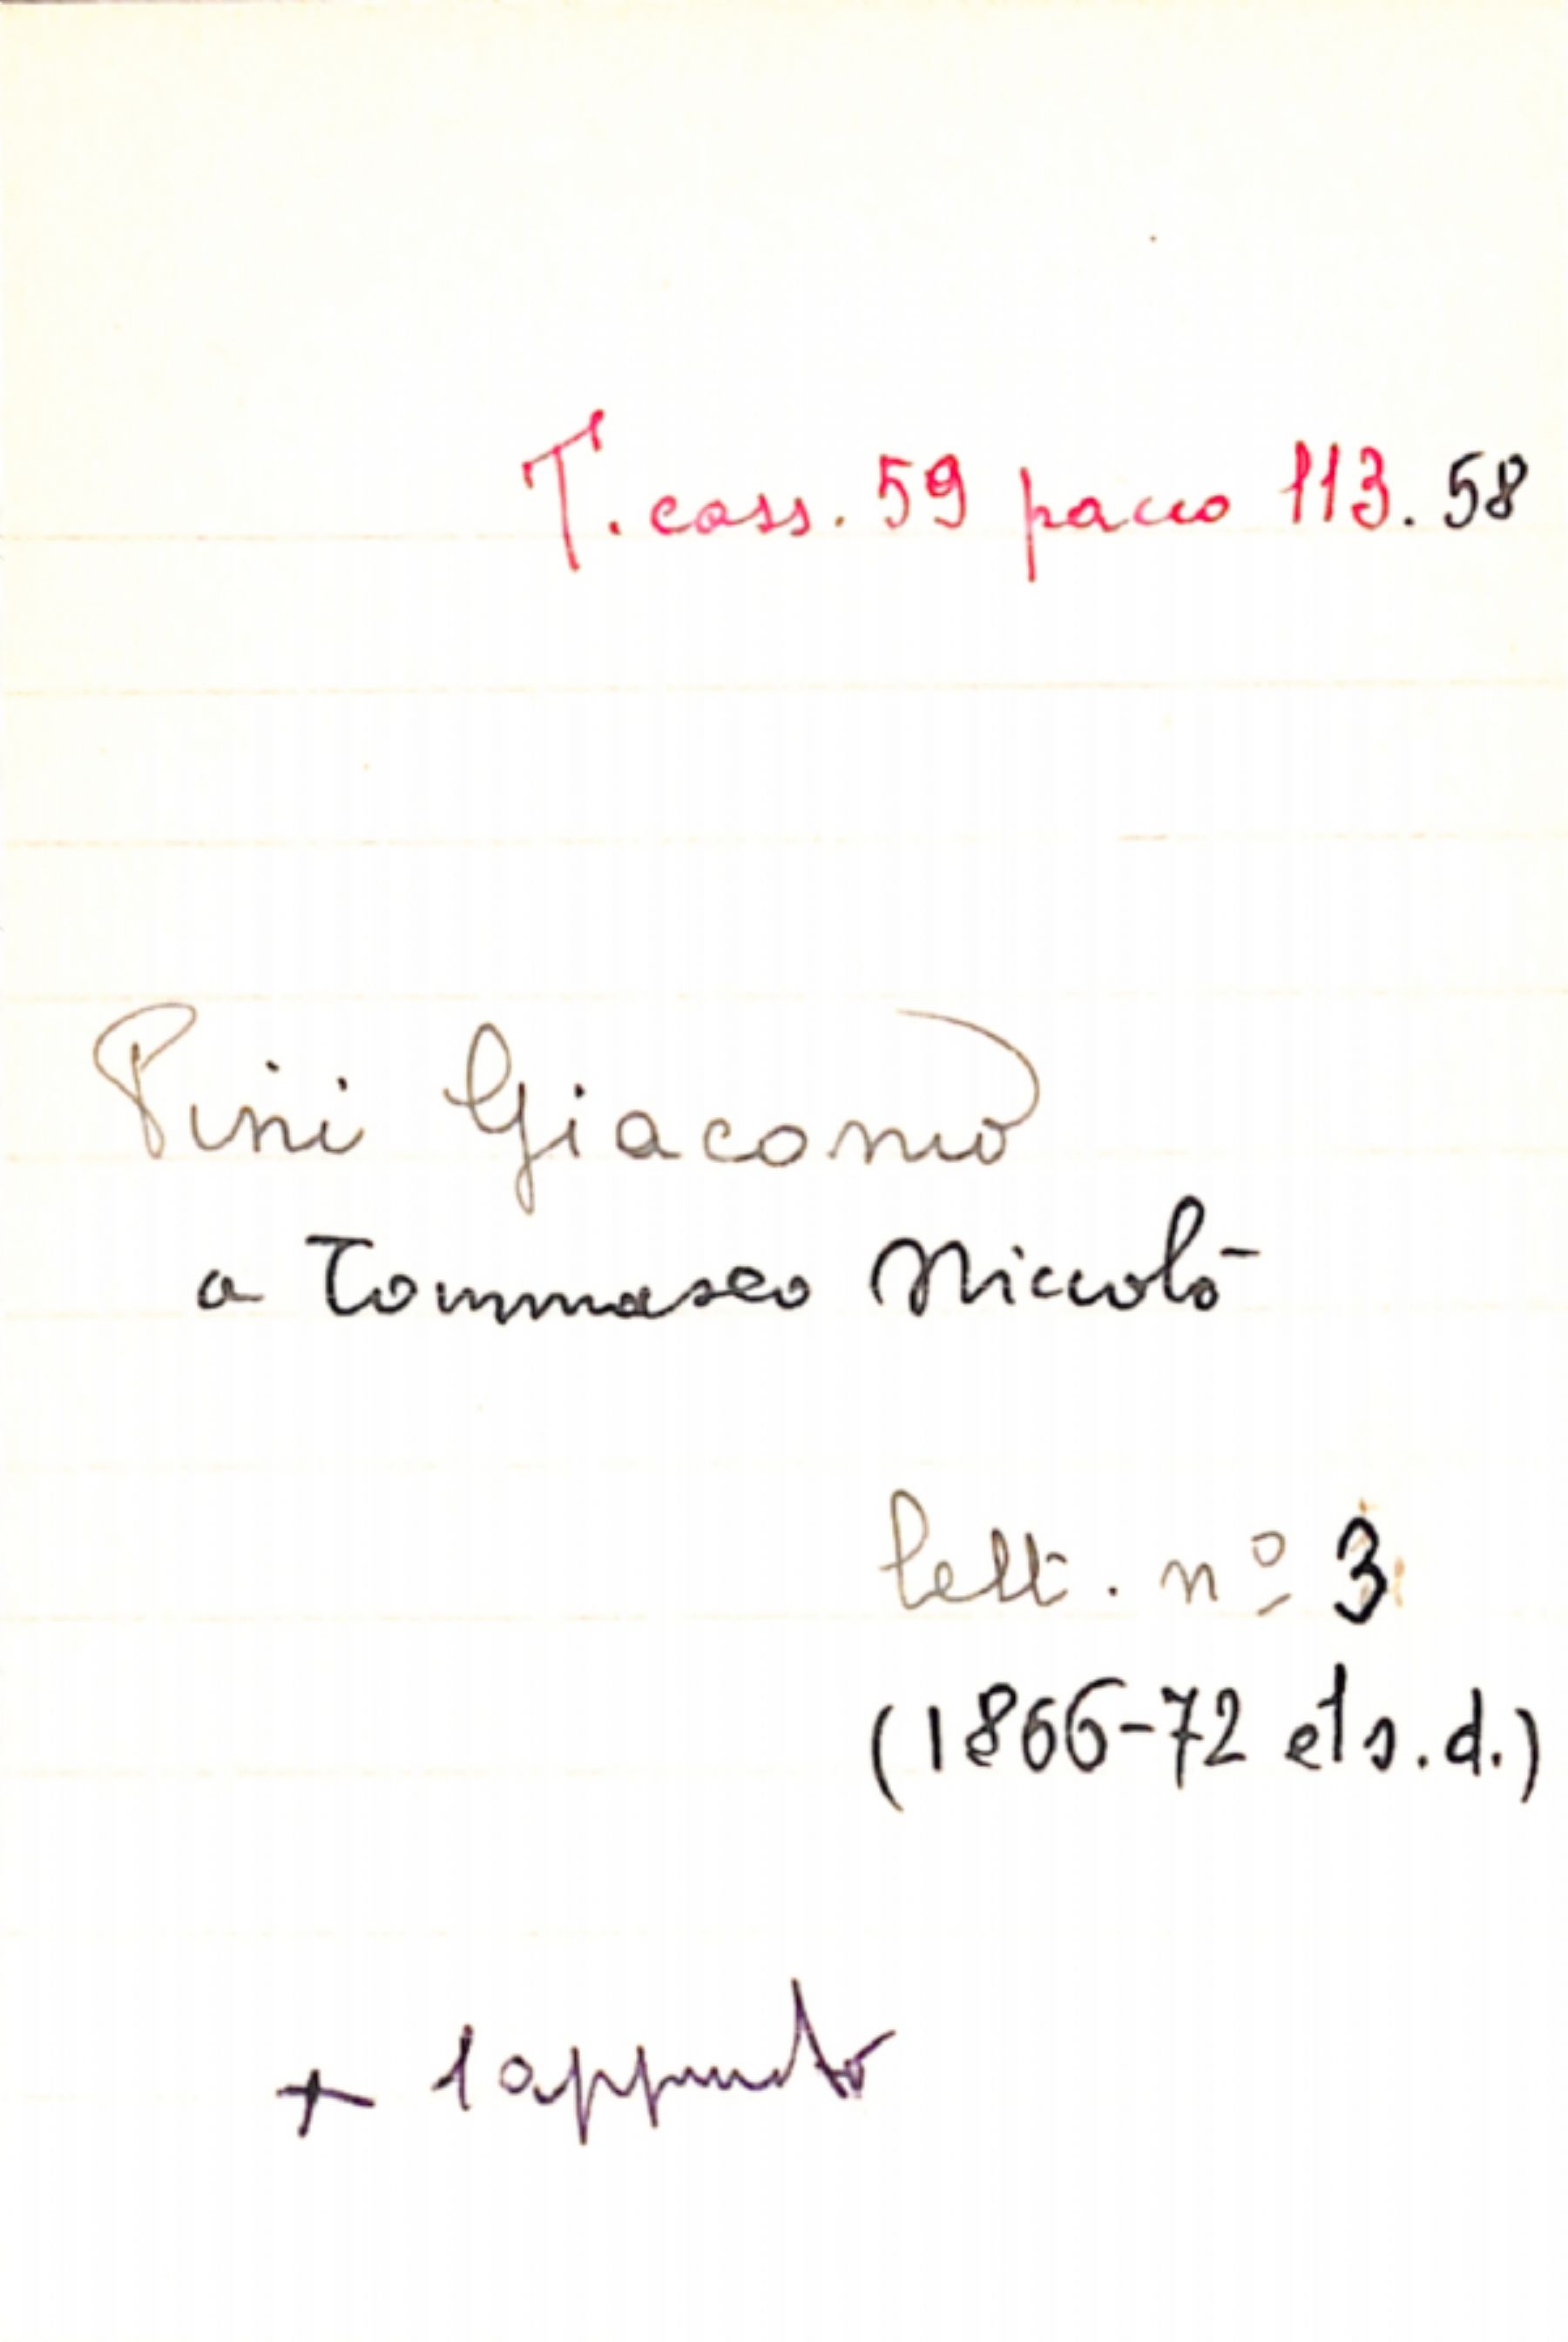 T. cass. 59 pacco 113. 58
Pini Giacomo
a Tommaseo Niccolò
lett. nº 3
(1866-72 e 1 s. d.)
+ 1 appunto